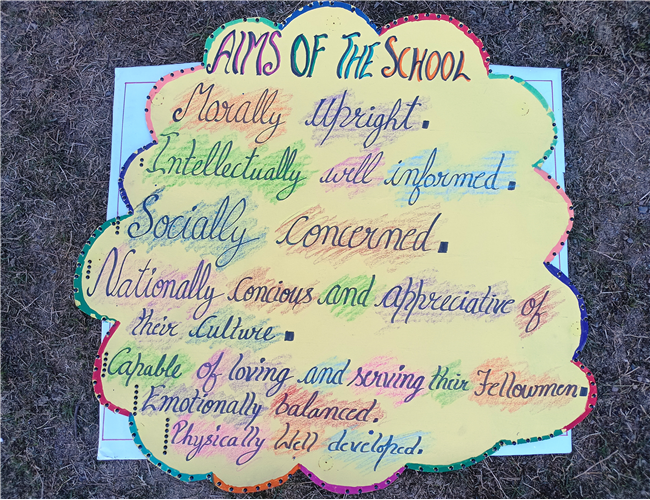 AIMS OF THE SCHOOL
Morally Upright.
Intellectually will informed.
Socially concerned.
Nationally concious and appreciative of
their culture.
Capable of loving and serving their Fellowmen.
Emotionally balanced.
Physically Well developed.